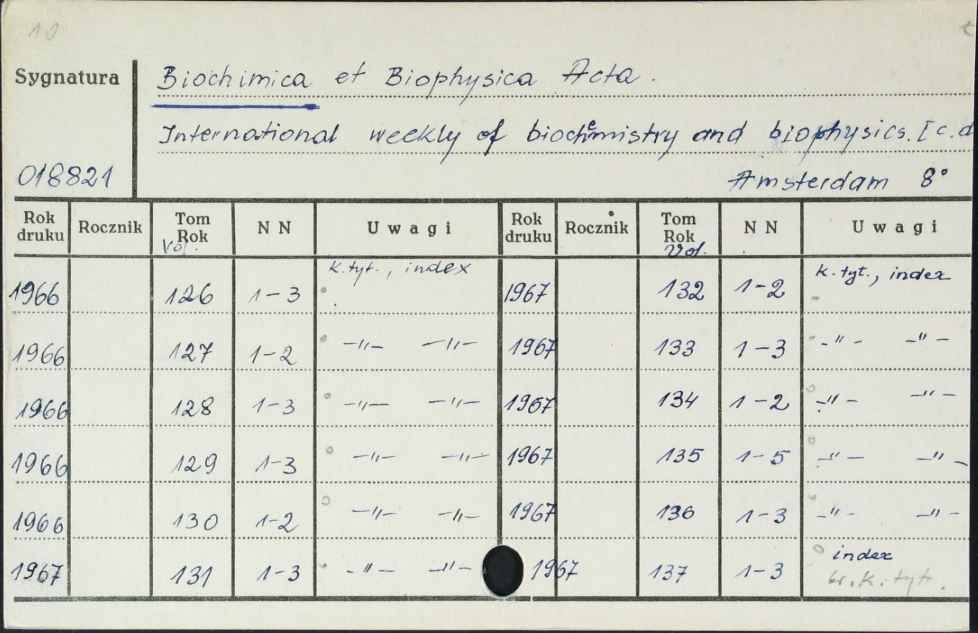 10
Sygnatura Biochimica et Biophysica Acta.
International weekly of biochemistry and biophysics. [c.d
018821 Amsterdam 8°
Rok druku Rocznik Tom Rok Vol. N N Uwagi Rok druku Rocznik Tom Rok Vol. N N Uwagi
1966 126 1-3 k. tyt., index 1967 132 1-2 k. tyt., index
1966 127 1-2 -"- -"- 1967 133 1-3 -"- -"-
1966 128 1-3 -"- -"- 1967 134 1-2 -"- -"-
1966 129 1-3 -"- -"- 1967 135 1-5 -"- -"-
1966 130 1-2 -"- -"- 1967 136 1-3 -"- -"-
1967 131 1-3 -"- -"- 1967 137 1-3 index
br. k. tyt.